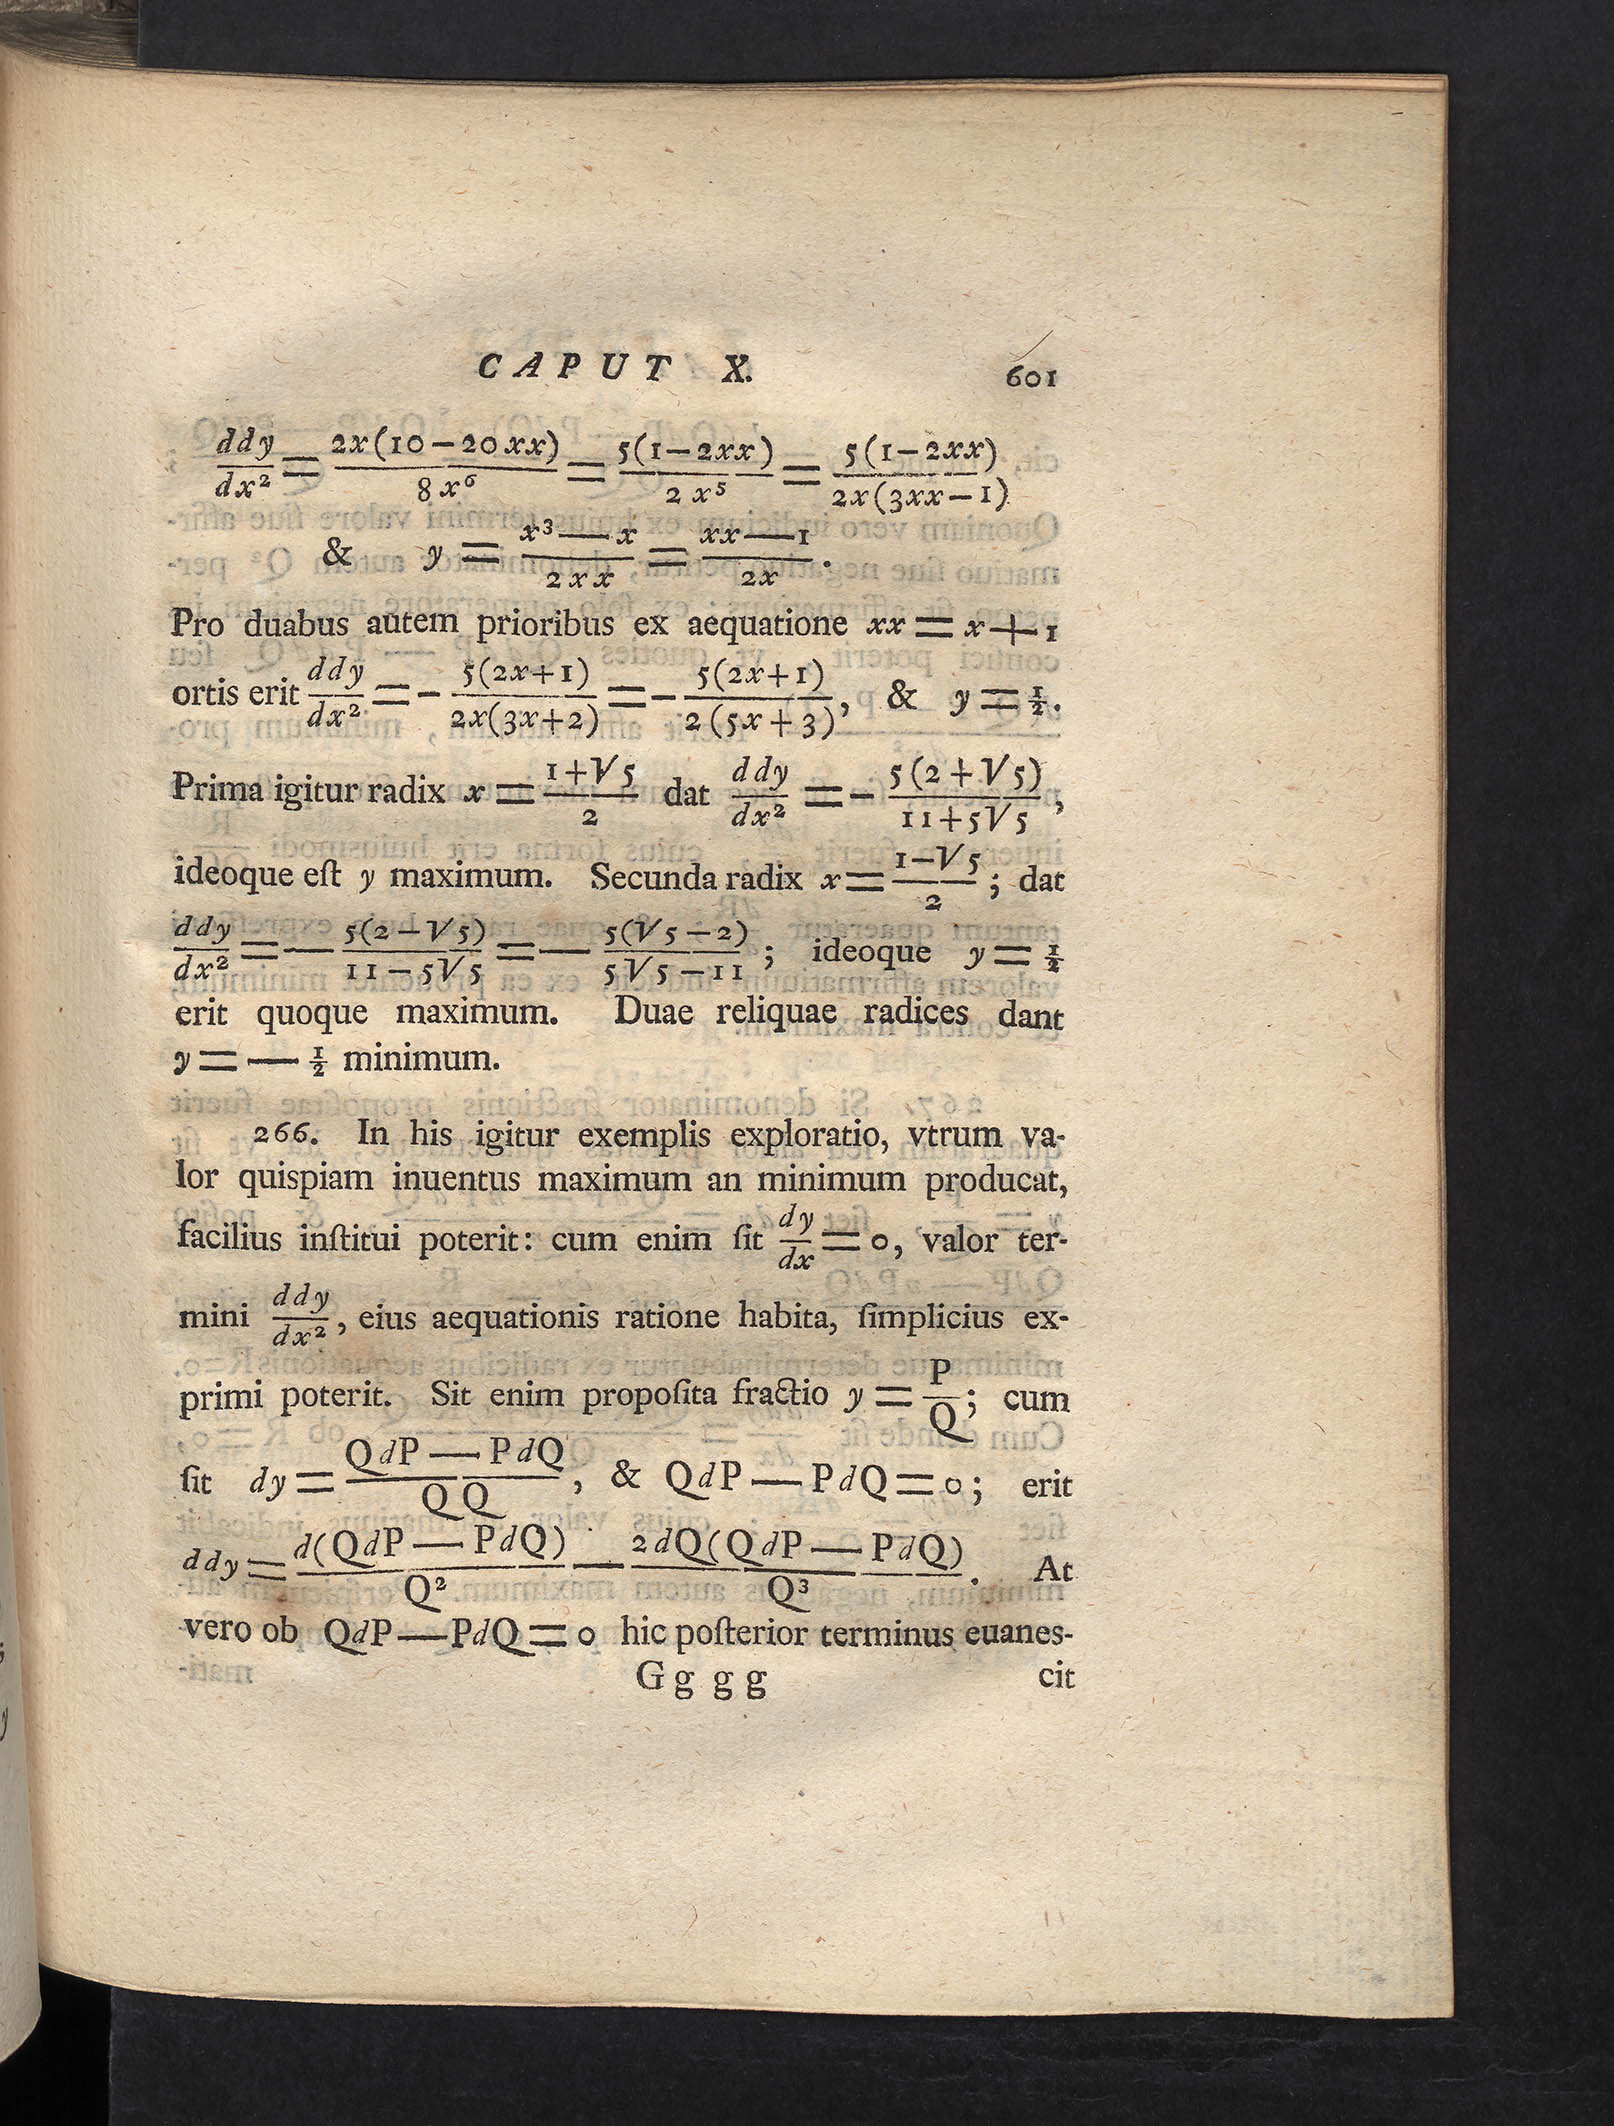 CAPUT X. 601
ddy/dx² = 2x(10−20xx)/8x⁶ = 5(1−2xx)/2x⁵ = 5(1−2xx)/2x(3xx−1)
& y = x³—x/2xx = xx—1/2x.
Pro duabus autem prioribus ex aequatione xx = x+1
ortis erit ddy/dx² = − 5(2x+1)/2x(3x+2) = − 5(2x+1)/2(5x+3), & y = ½.
Prima igitur radix x = 1+√5/2 dat ddy/dx² = − 5(2+√5)/11+5√5,
ideoque eſt y maximum. Secunda radix x = 1−√5/2; dat
ddy/dx² = — 5(2−√5)/11−5√5 = — 5(√5−2)/5√5−11; ideoque y = ½
erit quoque maximum. Duae reliquae radices dant
y = — ½ minimum.
266. In his igitur exemplis exploratio, vtrum va-
lor quispiam inuentus maximum an minimum producat,
facilius inſtitui poterit: cum enim ſit dy/dx = 0, valor ter-
mini ddy/dx², eius aequationis ratione habita, ſimplicius ex-
primi poterit. Sit enim propoſita fractio y = P/Q; cum
ſit dy = QdP — PdQ/QQ, & QdP — PdQ = 0; erit
ddy = d(QdP — PdQ)/Q² — 2dQ(QdP — PdQ)/Q³. At
vero ob QdP — PdQ = 0 hic poſterior terminus euanes-
Gggg cit